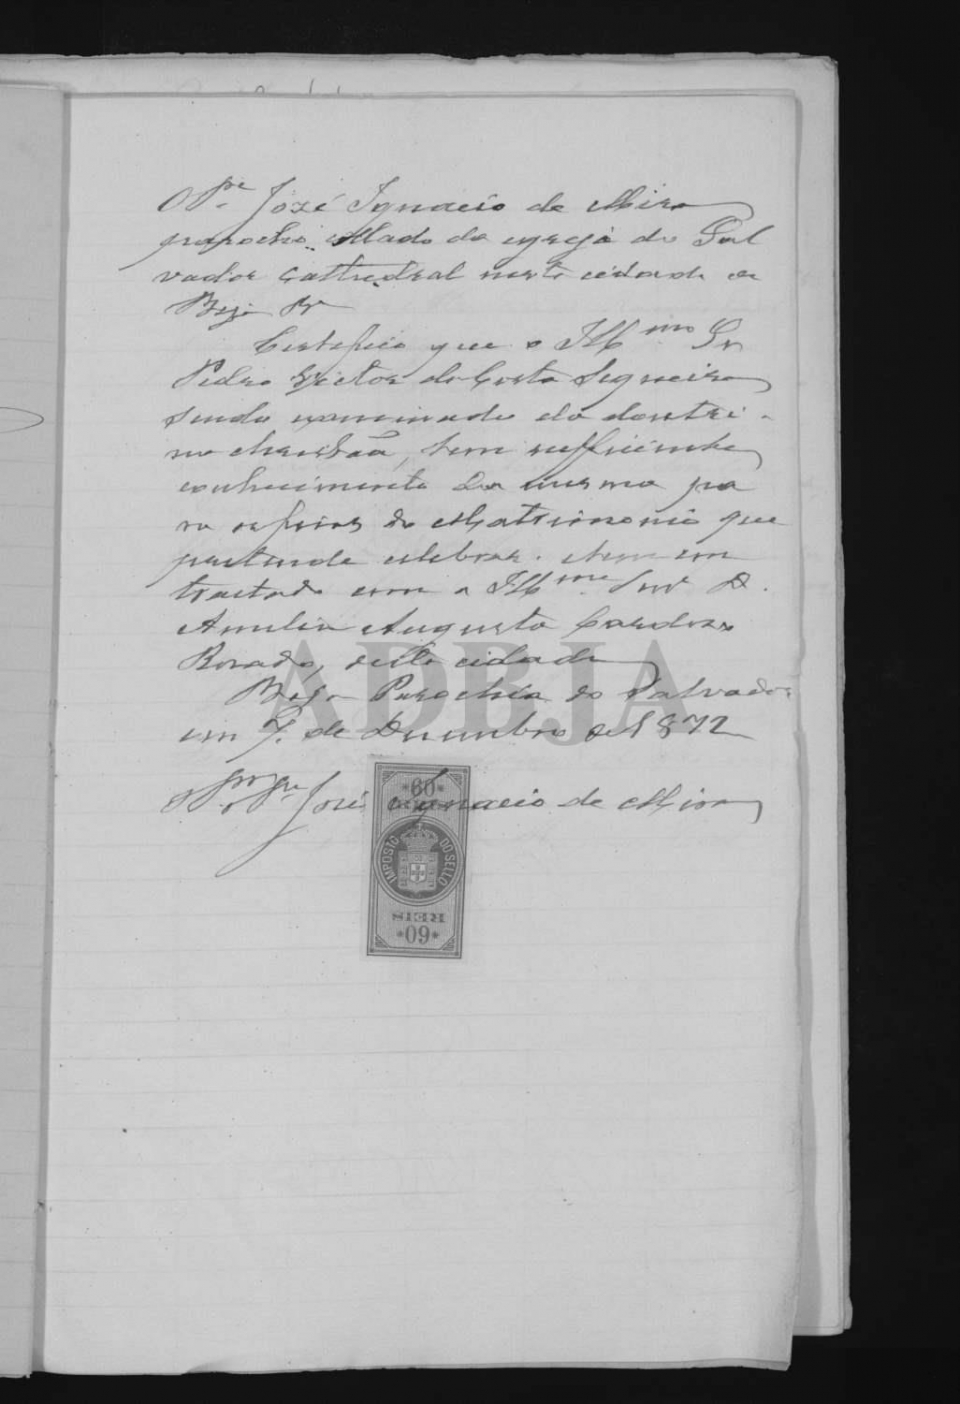 O P.e José Ignacio de Mira
parocho collado da egreja do Sal
vador Cathedral nesta cidade de
Beja &.ª
Certifico que o Ill.mo Sr
Pedro Victor da Costa Sequeira
sendo examinado da doutri-
na christãa, tem sufficiente
conhecimento da mesma pa
ra o fim do Matrimonio que
pretende celebrar. e tem con
tractado com a Ill.ma Snr.ª D.
Amelia Augusta Cardoso
Rosado, desta cidade
Beja Parochia do Salvador
em 7. de Dezembro de 1872
José Ignacio de Mira
*60*
REIS
IMPOSTO DO SELLO
REIS
*60*
ADBJA